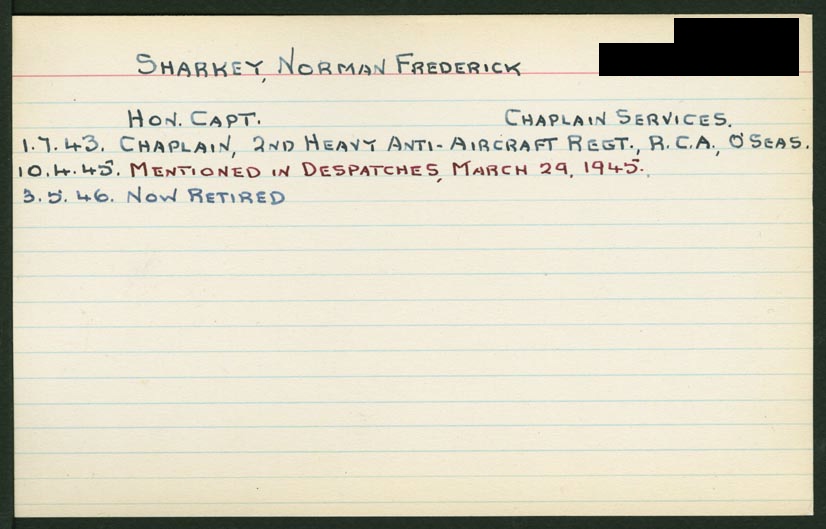 SHARKEY, NORMAN FREDERICK
HON. CAPT. CHAPLAIN SERVICES.
1.7.43. CHAPLAIN, 2ND HEAVY ANTI-AIRCRAFT REGT., R.C.A., O'SEAS.
10.4.45. MENTIONED IN DESPATCHES, MARCH 29, 1945.
3.5.46. NOW RETIRED